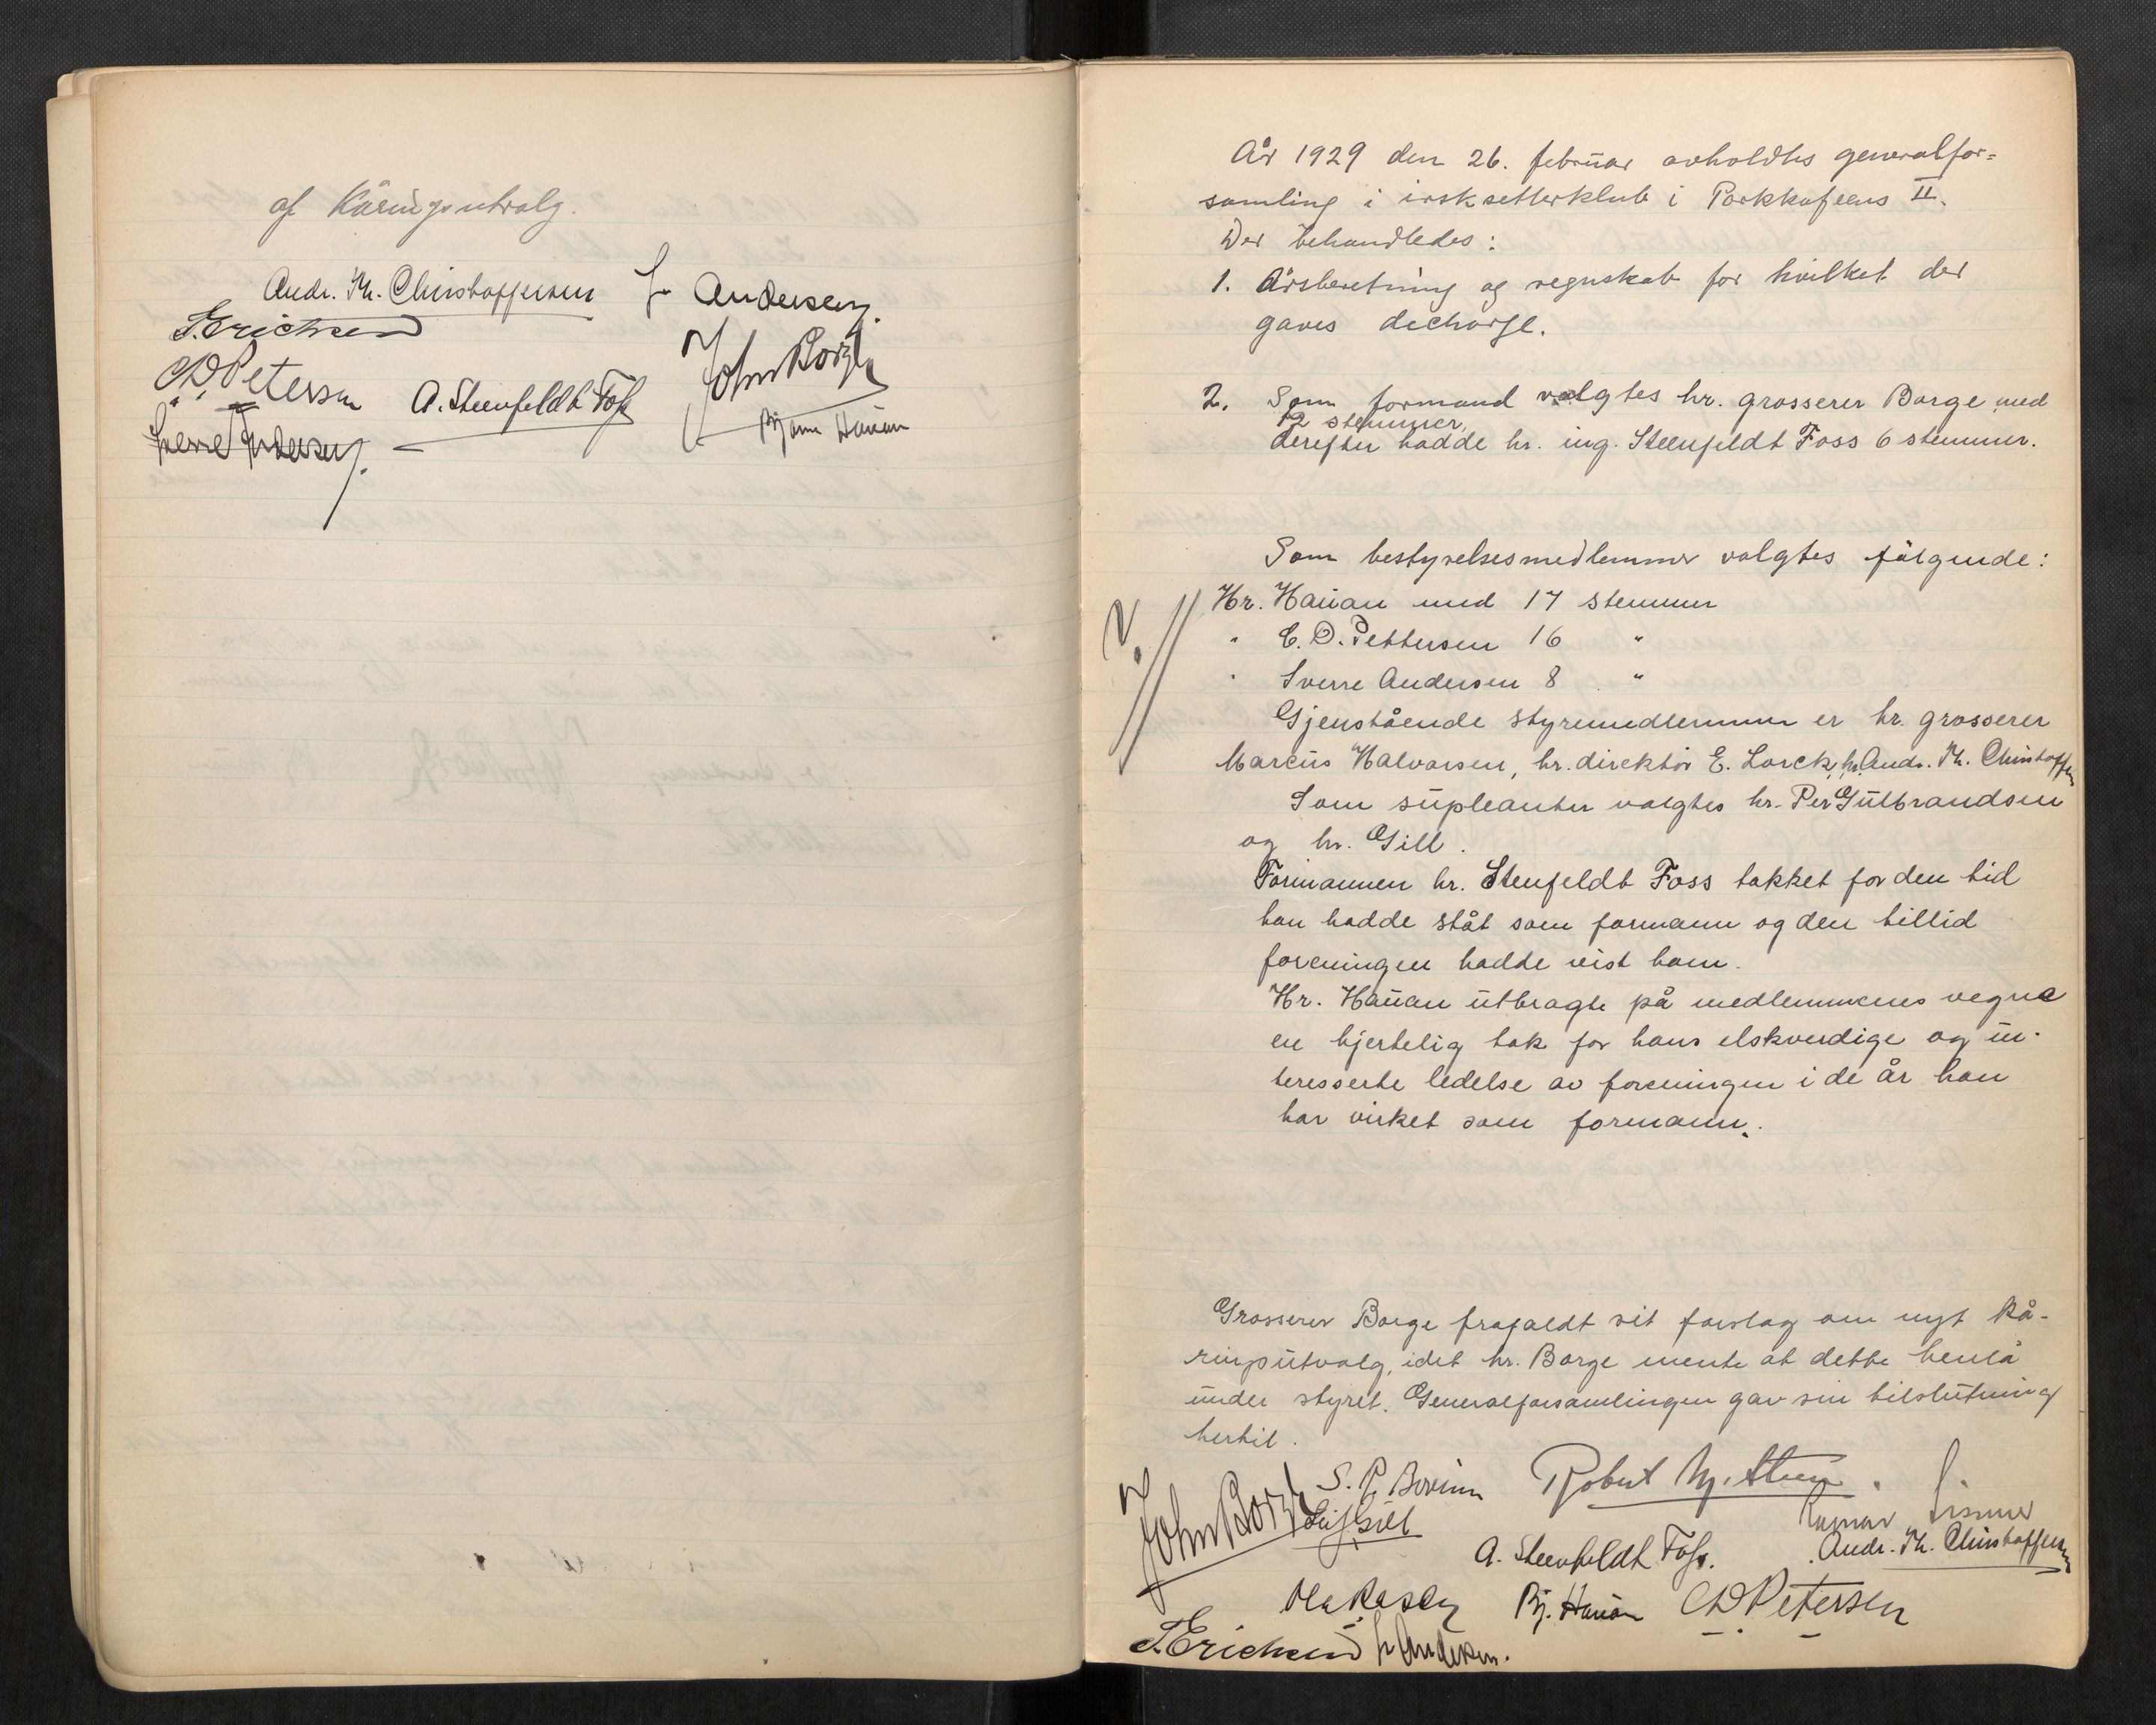 af Kåringsutvalg.
Andr. Th. Christoffersen
Andersen.
S. Erichsen
John Borge
C.D. Petersen
A. Steenfeldt Foss
Bjarne Hauan
Sverre Andersen.
År 1929 den 26. februar avholdtes generalfor=
samling i irsksetterklub i Parkkafeens II.
Der behandledes:
1. Årsberetning og regnskab for hvilket der
gaves decharge.
2. Som formand valgtes hr. grosserer Borge med
12 stemmer,
derefter hadde hr. ing. Steenfeldt Foss 6 stemmer.
Som bestyrelsesmedlemmer valgtes følgende:
V. Hr. Hauan med 17 stemmer
" C.D. Pettersen 16 "
" Sverre Andersen 8 "
Gjenstående styremedlemmer er hr. grosserer
Marcus Halvorsen, hr. direktør E. Lorck, hr. Andr. Th. Christoffersen
Som supleanter valgtes hr. Per Gulbrandsen
og hr. Gill.
Formannen hr. Stenfeldt Foss takket for den tid
han hadde ståt som formann og den tillid
foreningen hadde vist ham.
Hr. Hauan utbragte på medlemmenes vegne
en hjertelig tak for hans elskverdige og in-
teresserte ledelse av foreningen i de år han
har virket som formann.
Grosserer Borge frafaldt sit forslag om nyt kå-
ringsutvalg, idet hr. Borge mente at dette henlå
under styret. Generalforsamlingen gav sin tilslutning
hertil.
John Borge
S. P.
Robert
Leif Gill
Ragnar
A. Steenfeldt Foss.
Andr. Th. Christoffersen
Bj. Hauan
C.D. Petersen
S. Erichsen
Andersen.